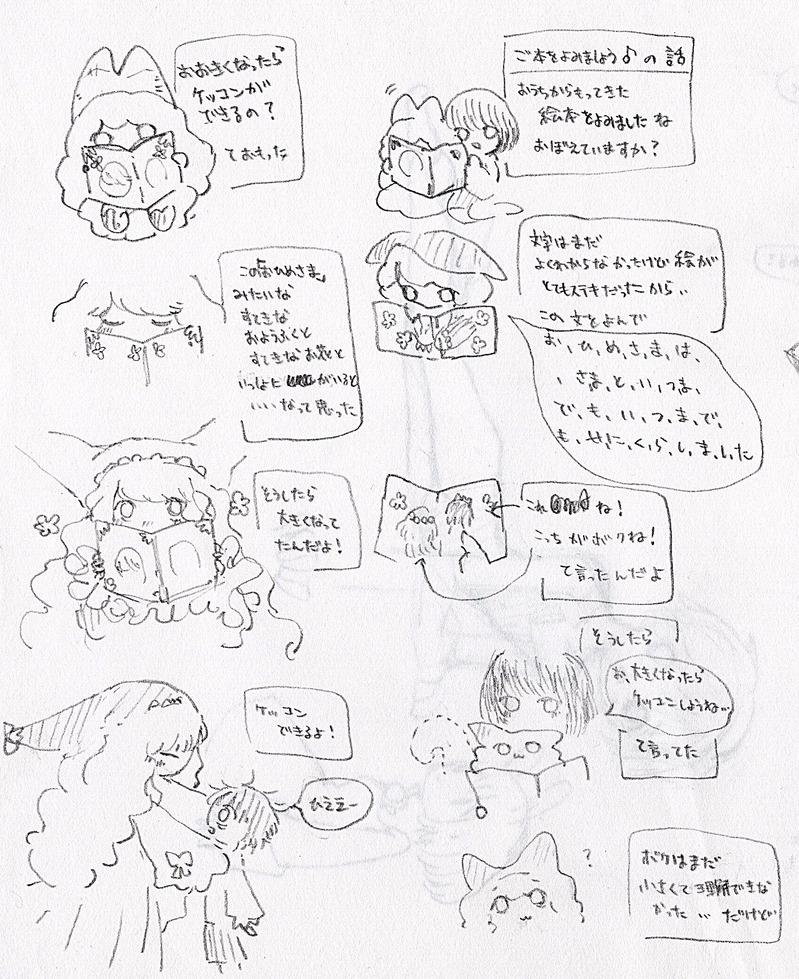 ご本をよみましょう♪の話
おうちからもってきた
絵本をよみましたね
おぼえていますか?
文字はまだ
よくわからなかったけど絵が
とてもステキだったから..
この文をよんで
お、ひ、め、さ、ま、は、
、さま、と、い、つ、ま、
で、も、い、つ、ま、で、
も、せ、に、く、ら、し、ま、し、た
これ ね!
こっちがボクね!
て言ったんだよ
そうしたら
お、大きくなったら
ケッコンしようね…
て言ってた
?
ボクはまだ
小さくて理解できな
かった…だけど
おおきくなったら
ケッコンが
できるの?
ておもった
この「おひめさま」
みたいな
すてきな
おようふくと
すてきなお花と
いっしょに がいると
いいなって思った
そうしたら
大きくなって
たんだよ!
ケッコン
できるよ!
ひええー